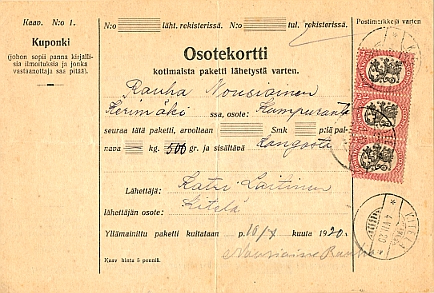 Kaav. N:o 1.
N:o läht. rekisterissä. N:o tul. rekisterissä.
Postimerkkejä varten
Kuponki
(johon sopii panna kirjallisia ilmoituksia ja jonka vastaanottaja saa pitää).
Osotekortti
kotimaista paketti lähetystä varten.
Rauha Nousiainen
Kerimäki ssa, osote: Kumpuranta
seuraa tätä paketti, arvoltaan Smk p:lä pal-
nava kg. 500 gr. ja sisältävä Kangasta
Lähettäjä: Katri Laitinen
lähettäjän osote: Kitelä
Yllämainittu paketti kuitataan p. 10/X kuuta 1920.
Nousiainen Rauha
Kaav hinta 5 penniä.